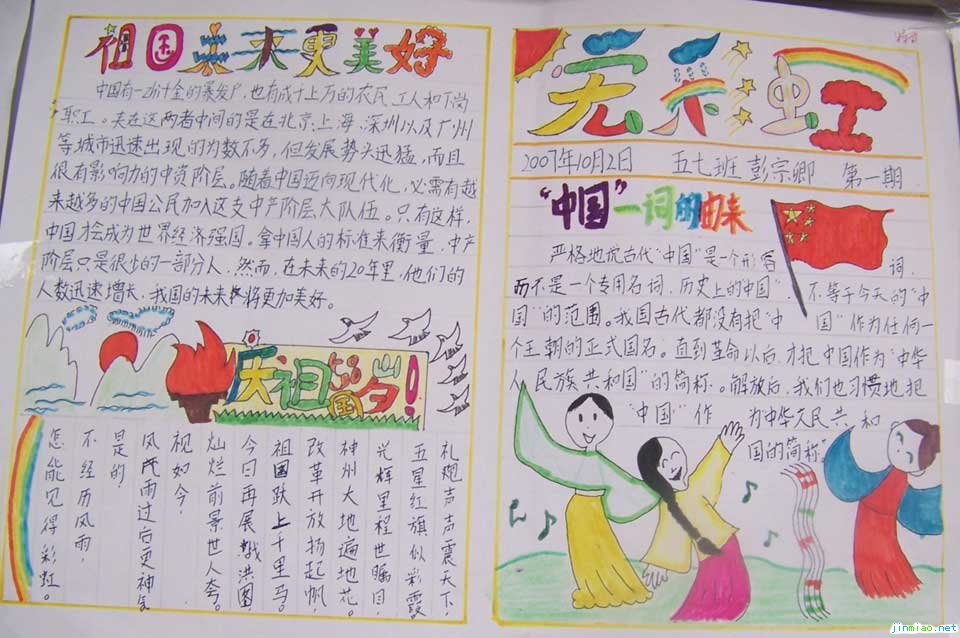 祖国未来更美好
中国有一小计全的暴发户,也有成千上万的农民、工人和下岗
职工。夹在这两者中间的是在北京、上海、深圳以及广州
等城市迅速出现的为数不多,但发展势头迅猛,而且
很有影响力的中资阶层。随着中国迈向现代化,必需有越
来越多的中国公民加入这支中产阶层大队伍。只有这样,
中国才会成为世界经济强国。拿中国人的标准来衡量,中产
阶层只是很少的一部分人,然而,在未来的20年里,他们的
人数迅速增长,我国的未来将更加美好。
庆祖国58岁!
礼炮声声震天下,
五星红旗似彩霞。
光辉里程世瞩目,
神州大地遍地花。
改革开放扬起帆
祖国跃上千里马。
今日再展戬洪图
灿烂前景世人夸。
视如今?
风雨过后更神气
是的!
不经历风雨,
怎能见得彩虹。
天虹
2007年10月2日 五七班 彭宗卿 第一期
“中国”一词的由来
严格地说古代“中国”是一个形容词,
而不是一个专用名词,历史上的“中国”不等于今天的“中
国”的范围。我国古代都没有把“中国”作为任何一
个王朝的正式国名。直到革命以后,才把中国作为“中华
人民族共和国”的简称。解放后,我们也习惯地把
“中国”作为中华人民共和
国的简称”
jinmiao.net